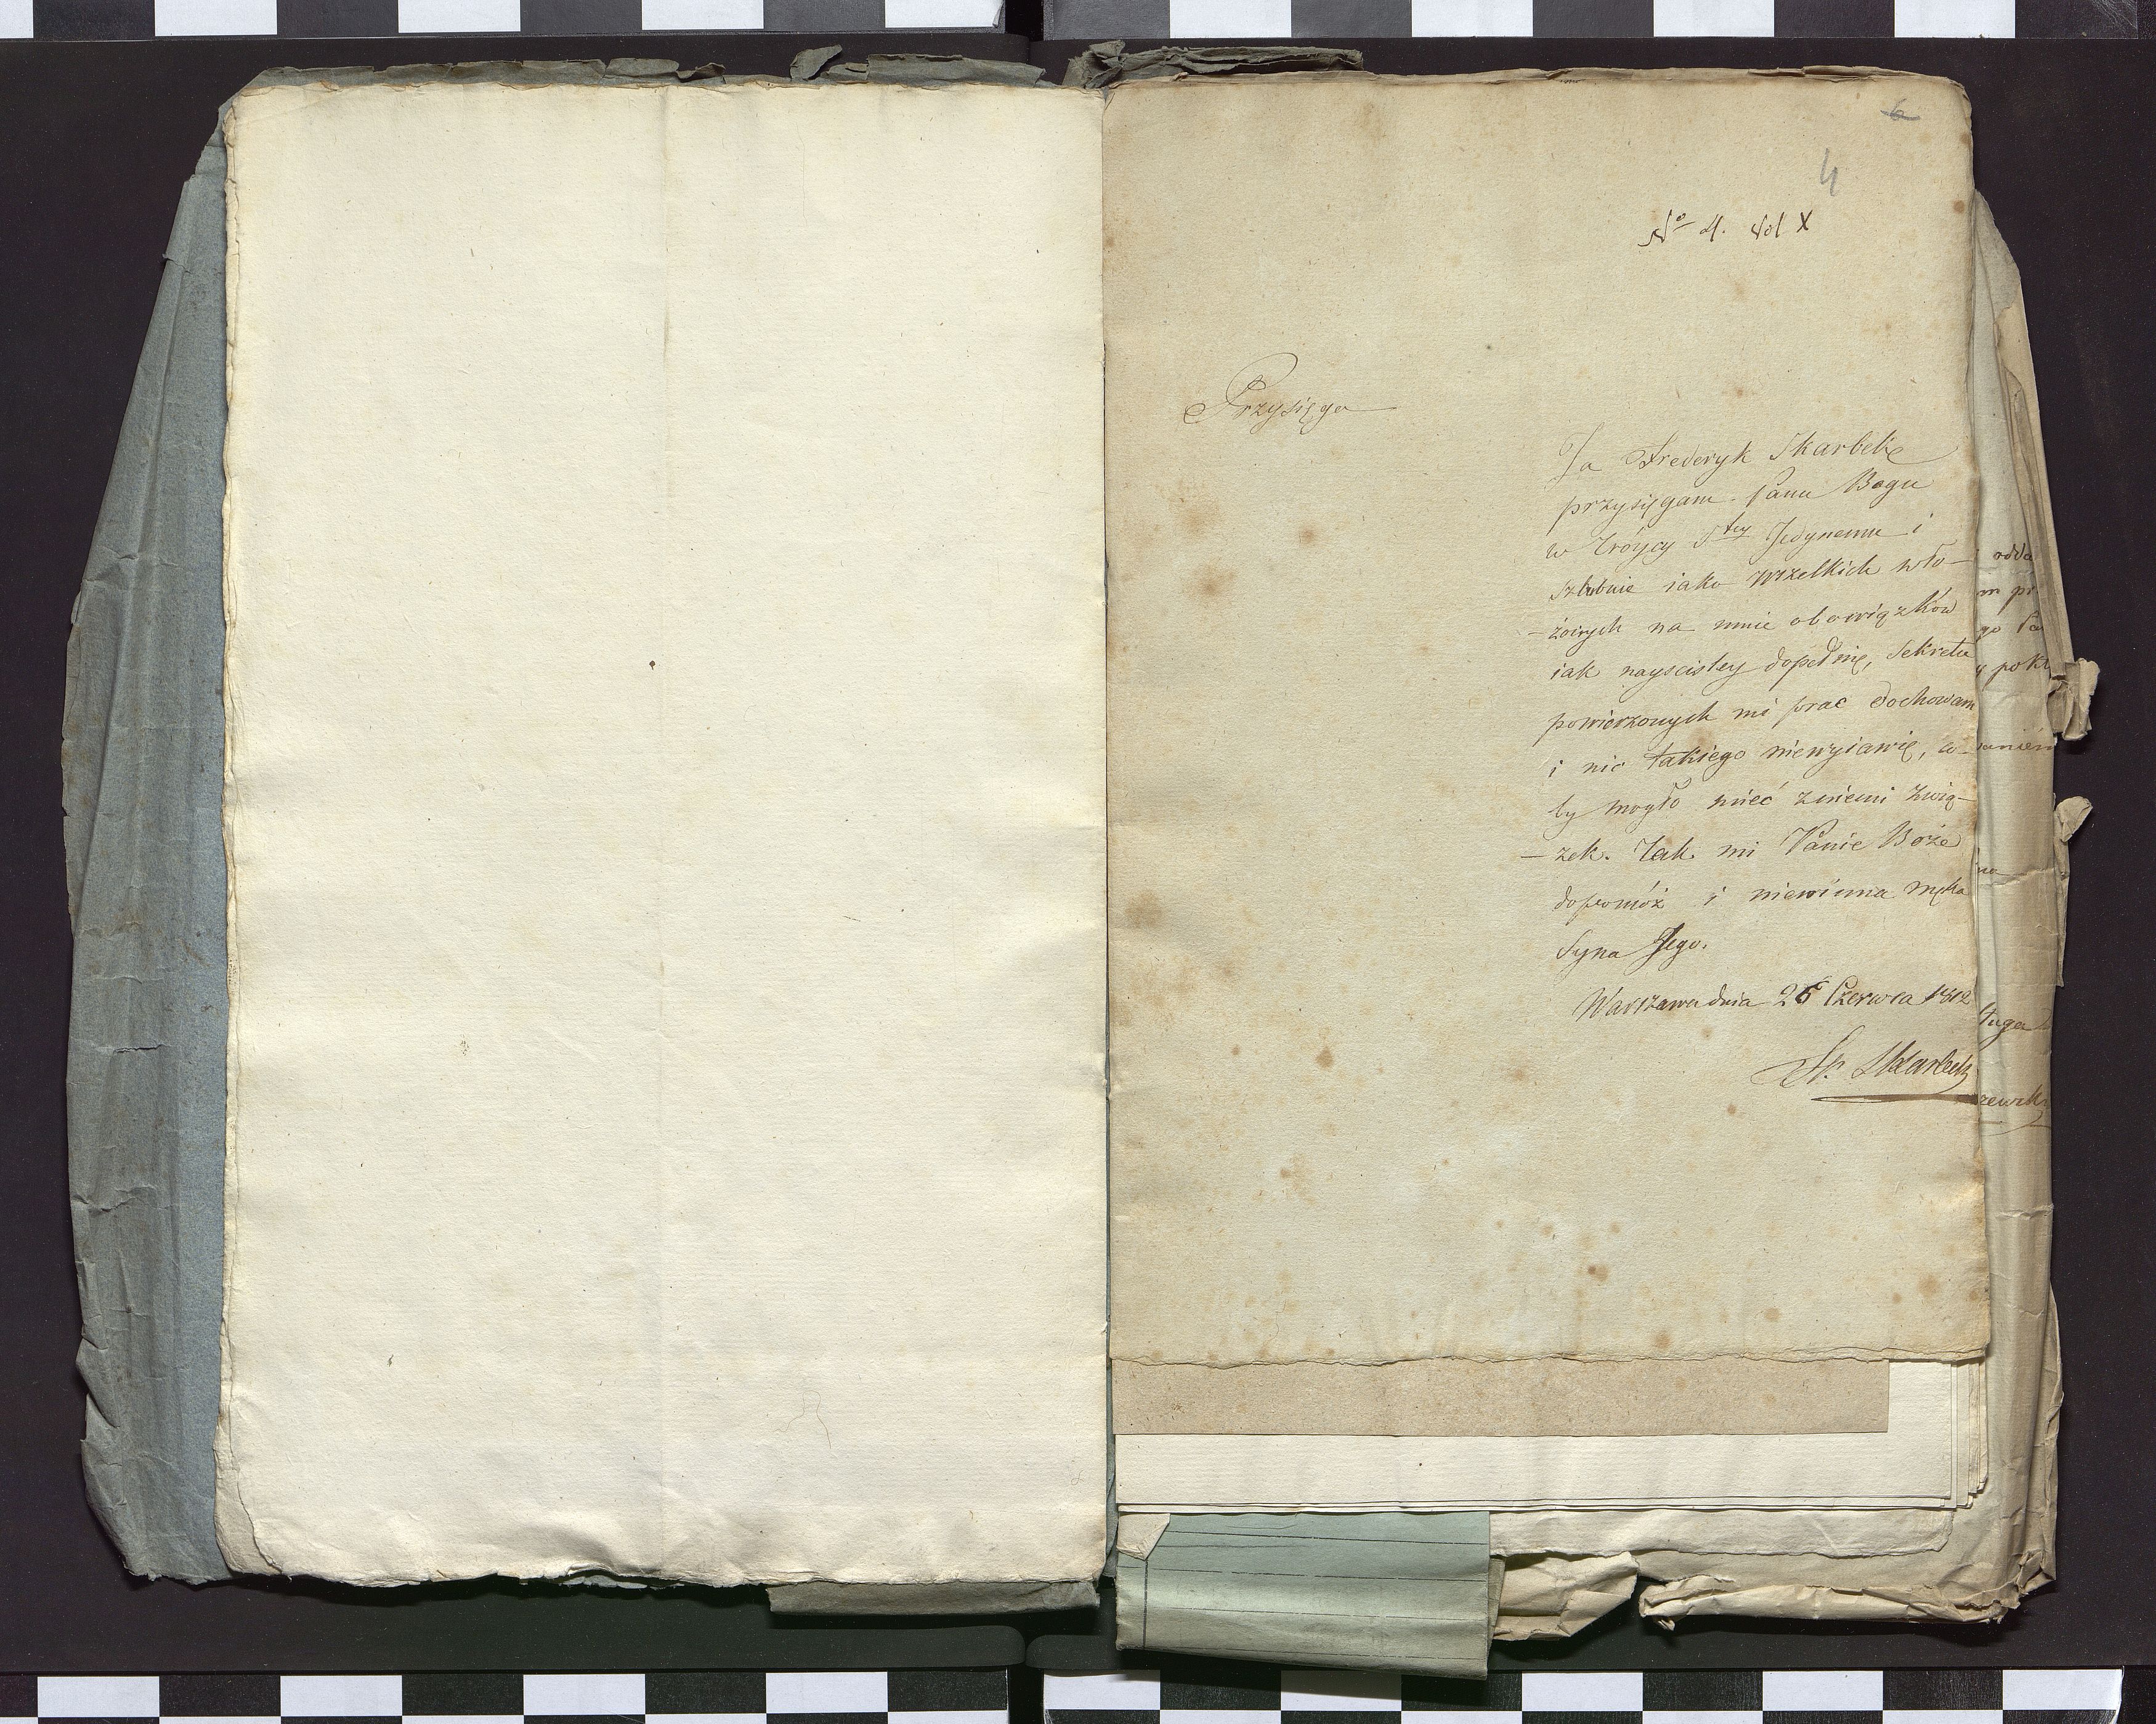 6
4
No 4. Vol X
Przysięga
Ja Frederyk Skarbek
przysięgam Panu Bogu
w Tróycy Stey Jedynemu i
szlubuie iako wszelkich wło-
-żonych na mnie obowiązków
iak nayscisley dopełnię, sekretu
powierzonych mi prac dochowam
i nic takiego niewyiawię, co-
by mogło mieć zniemi zwią-
-zek. Tak mi Panie Boże
dopomóż i niewinna męka
Syna Jego.
Warszawa dnia 26 Czerwca 1812
Fr. Skarbek
odda
m pr
go Pa
y pokł
aniem
na
ługa
zewski